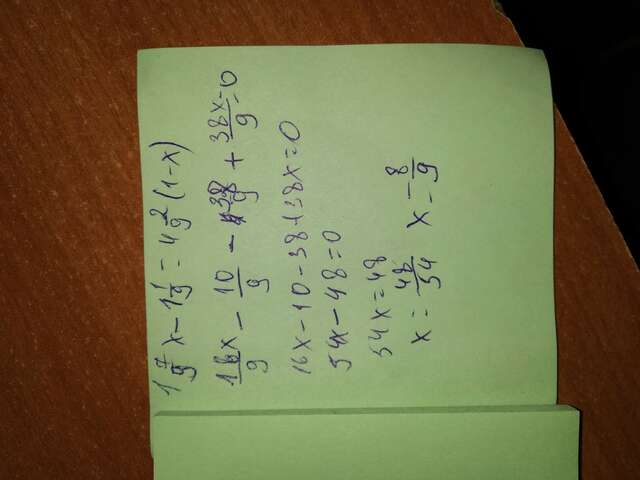 1 7/9 x - 1 1/9 = 4 2/9 (1-x)
16x/9 - 10/9 - 38/9 + 38x/9 = 0
16x - 10 - 38 + 38x = 0
54x - 48 = 0
54x = 48
x = 48/54 x = 8/9